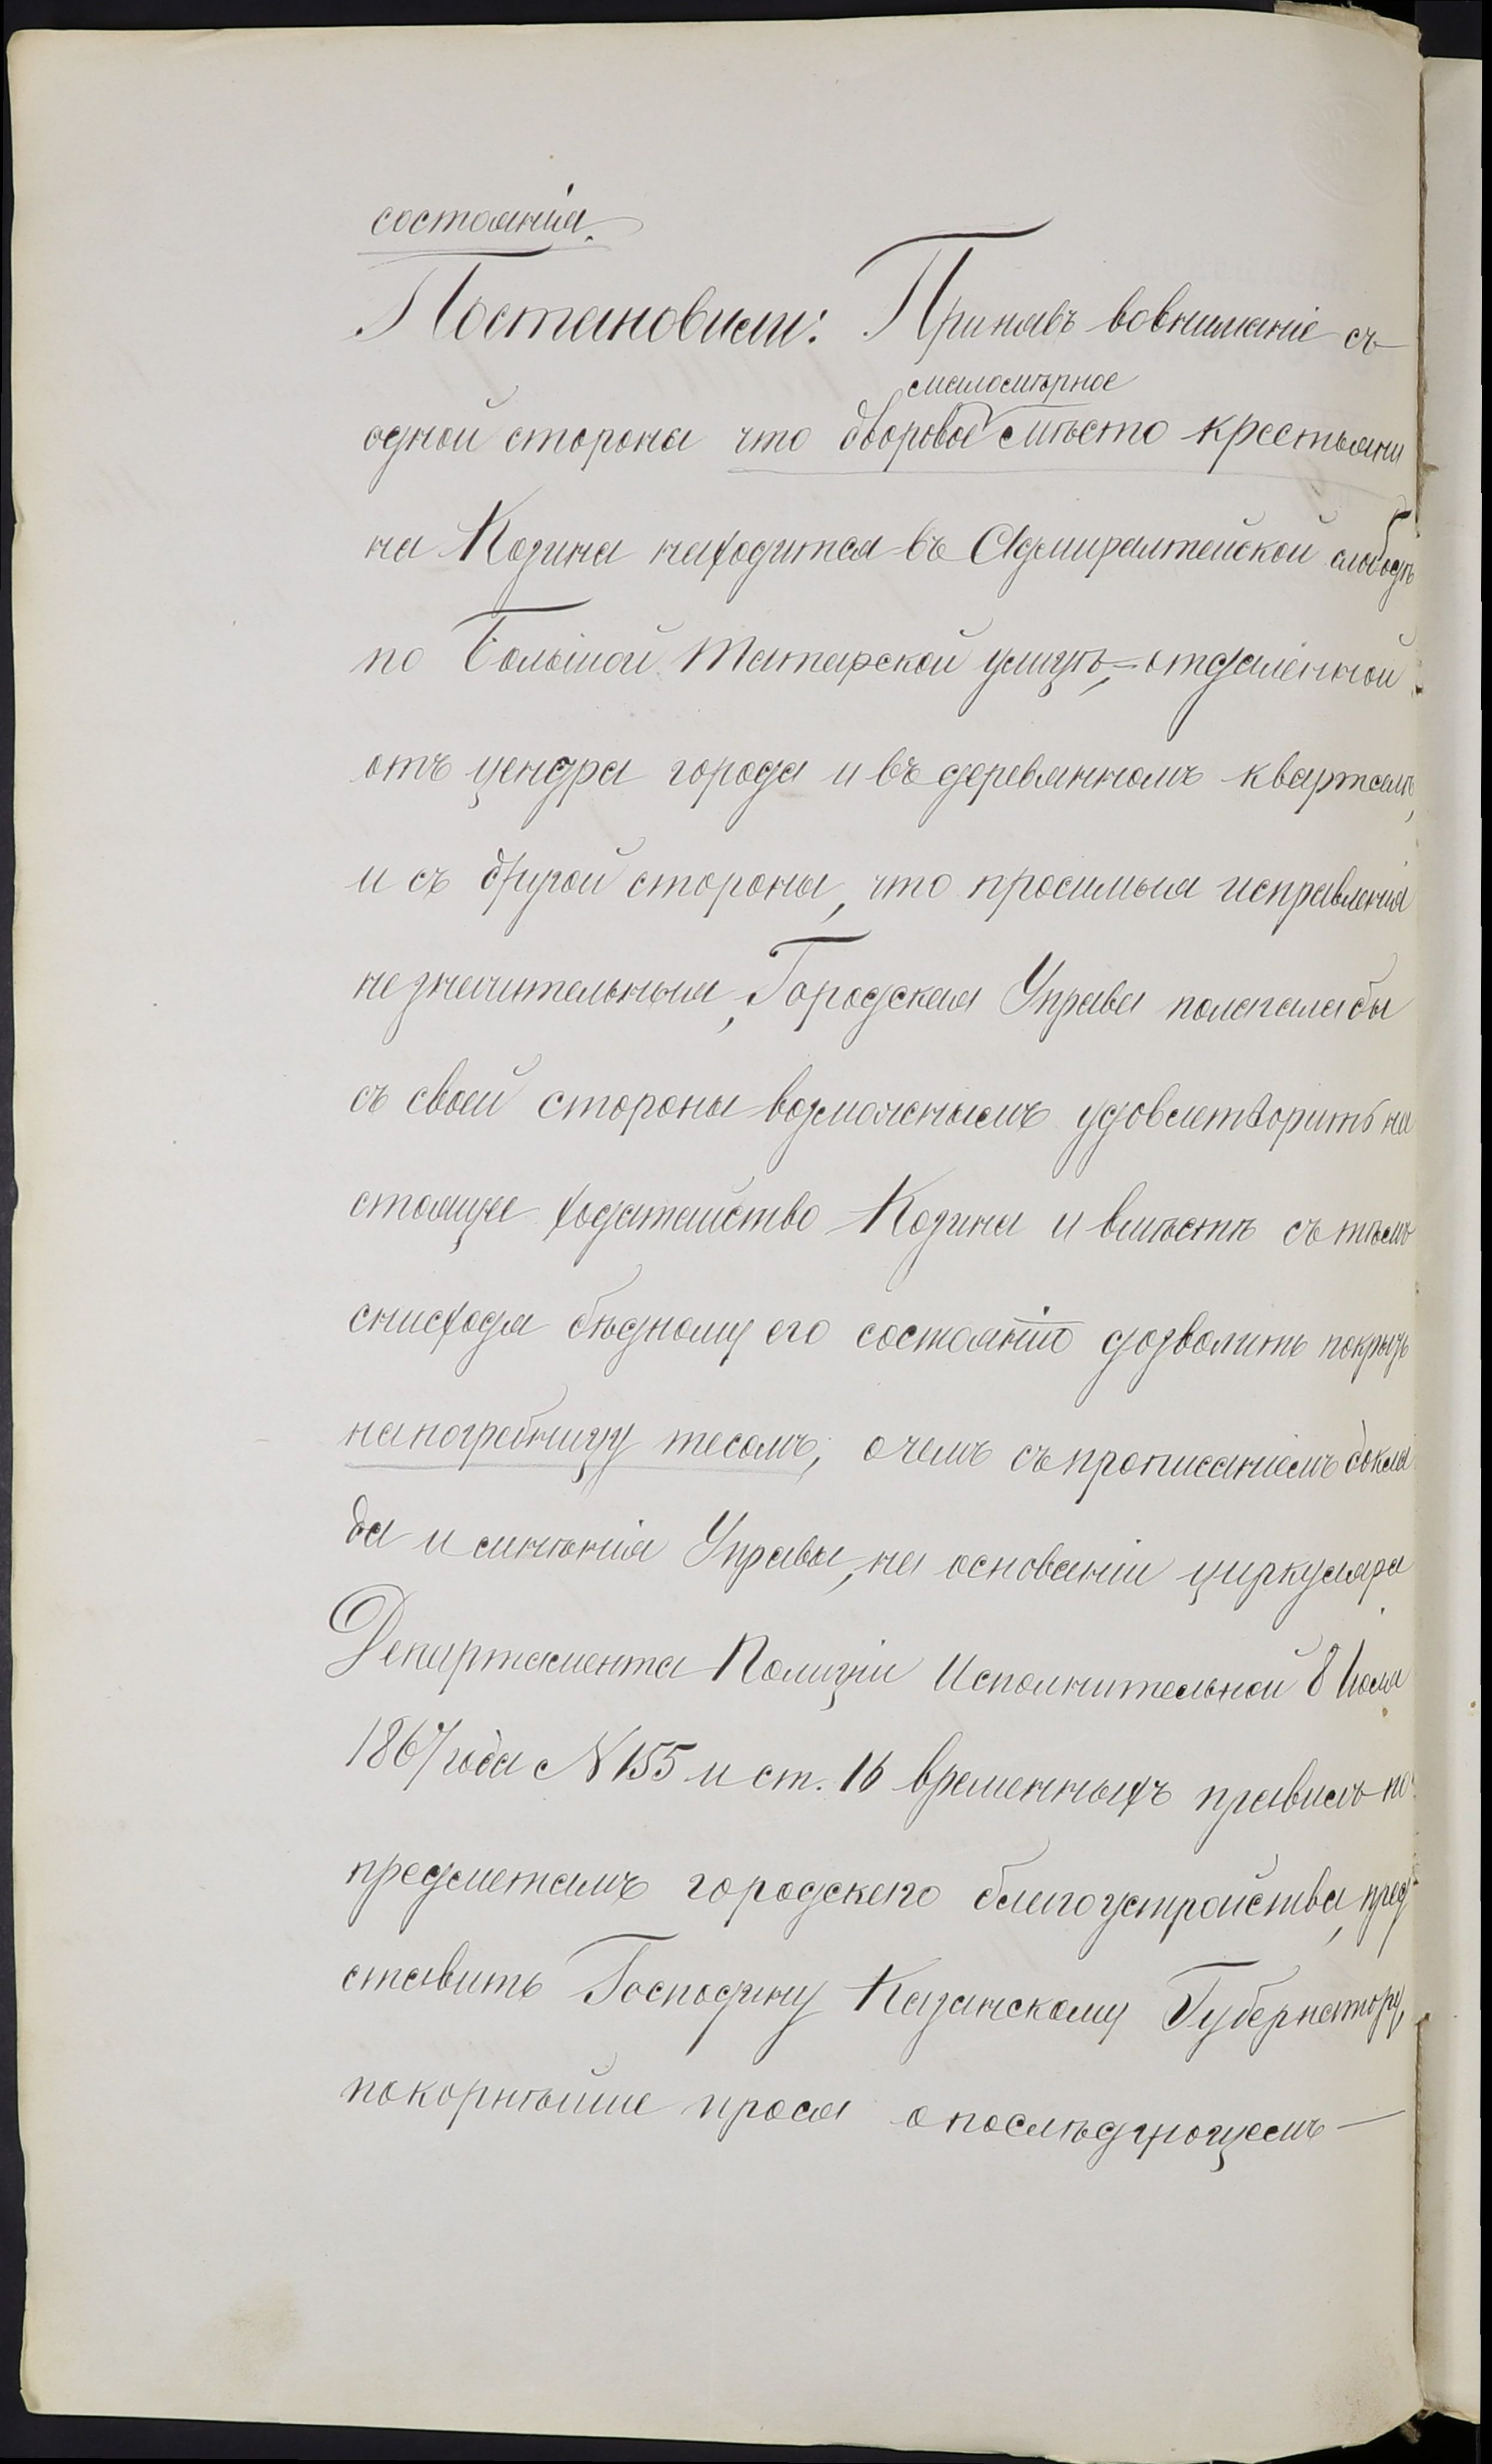 состоянія.
Постановили: Принявъ вовниманіе съ
маломѣрное
одной стороны что дворовое мѣсто крестьяни
на Козина находится въ Адмиралтейской слободѣ
по Большой Татарской улицѣ, отдаленной
отъ цендра города и въ деревянномъ кварталѣ,
и съ другой стороны, что просимыя исправленія
незначительныя, Городская Управа полагала бы
съ своей стороны возможнымъ удовлетворить на
стоящее ходатайство Козина и вмѣстѣ съ тѣмъ
снисходя бѣдному его состоянію дозволить покрыть
напогребницу тесомъ, о чемъ съ прописаніемъ докла
да и мнѣнія Управы, на основаніи циркуляра
Департамента Полиціи Исполнительной 8 Іюля
1867 года № 155 и ст. 16 временныхъ правилъ по
предметамъ городскаго благоустройства, пред
ставить Господину Казанскому Губернатору,
покорнѣйше прося о послѣдующемъ